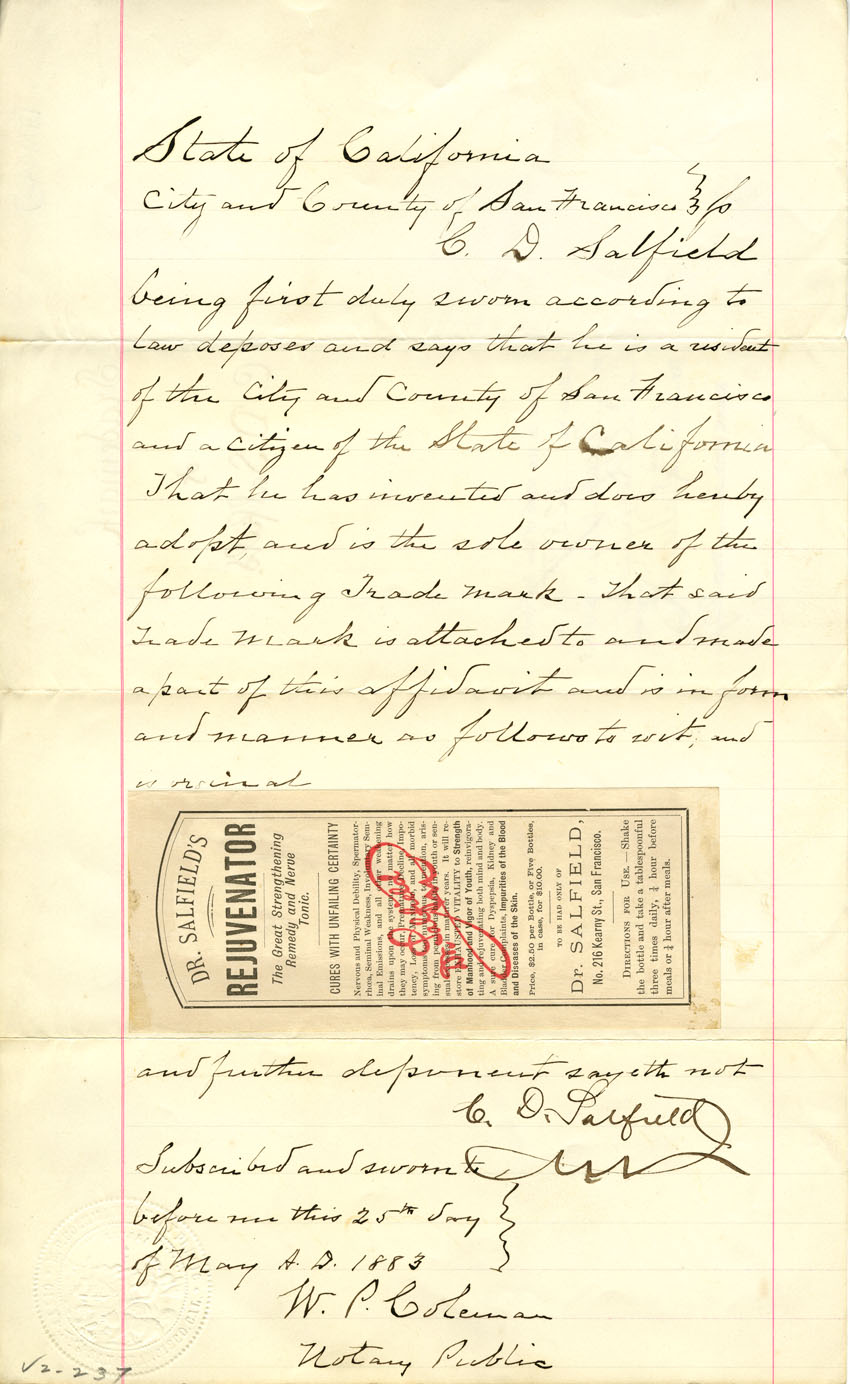 State of California
City and County of San Francisco } ss
C. D. Salfield
being first duly sworn according to
law deposes and says that he is a resident
of the City and County of San Francisco
and a citizen of the State of California
That he has invented and does hereby
adopt, and is the sole owner of the
following Trade Mark - That said
Trade Mark is attached to and made
a part of this affidavit and is in form
and manner as follows to wit; and
is
DR. SALFIELD'S
REJUVENATOR
The Great Strengthening
Remedy and Nerve
Tonic.
CURES WITH UNFAILING CERTAINTY
Nervous and Physical Debility, Spermator-
rhœa, Seminal Weakness, Involuntary Sem-
inal Emissions, and all other weakening
drains upon the system, no matter how
they may occur, Premature Decline, Impo-
tency, Lost Manhood, and all morbid
symptoms, aris-
ing from youth or sen-
sual in maturer years. It will re-
store EXHAUSTED VITALITY to Strength
of Manhood and Vigor of Youth, reinvigora-
ting and rejuvenating both mind and body.
A sure cure for Dyspepsia, Kidney and
Bladder Complaints, Impurities of the Blood
and Diseases of the Skin.
Price, $2.50 per Bottle, or Five Bottles,
in case, for $10.00.
TO BE HAD ONLY OF
Dr. SALFIELD,
No. 216 Kearny St., San Francisco.
DIRECTIONS FOR USE.—Shake
the bottle and take a tablespoonful
three times daily, ½ hour before
meals or ½ hour after meals.
Dr Salfield
and further deponent sayeth not
C. D. Salfield
Subscribed and sworn to
before me this 25th day
of May A. D. 1883
W. P. Coleman
Notary Public
V2-237